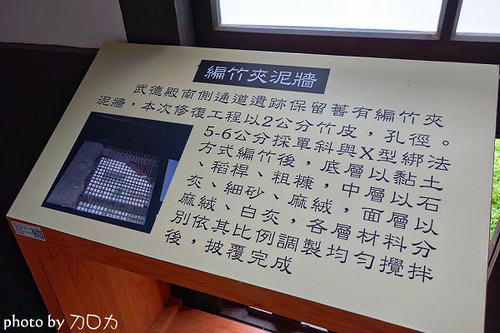 編竹夾泥牆
武德殿南側通道遺跡保留舊有編竹夾
泥牆，本次修復工程以2公分竹皮，孔徑。
5-6公分採單斜與X型綁法
方式編竹後，底層以黏土
、稻桿、粗糠，中層以石
灰、細砂、麻絨，面層以
麻絨、白灰，各層材料分
別依其比例調製均勻攪拌
後，披覆完成
photo by 力口力